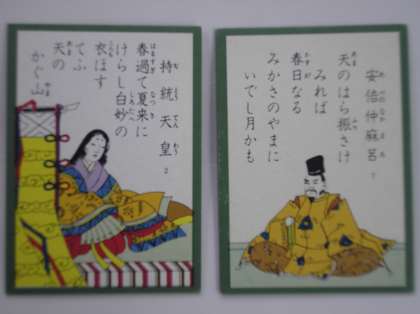 持統天皇
2
春過て夏来に
けらし白妙の
衣ほす
てふ
天の
かぐ山
安倍仲麻呂
7
天のはら振さけ
みれば
春日なる
みかさのやまに
いでし月かも